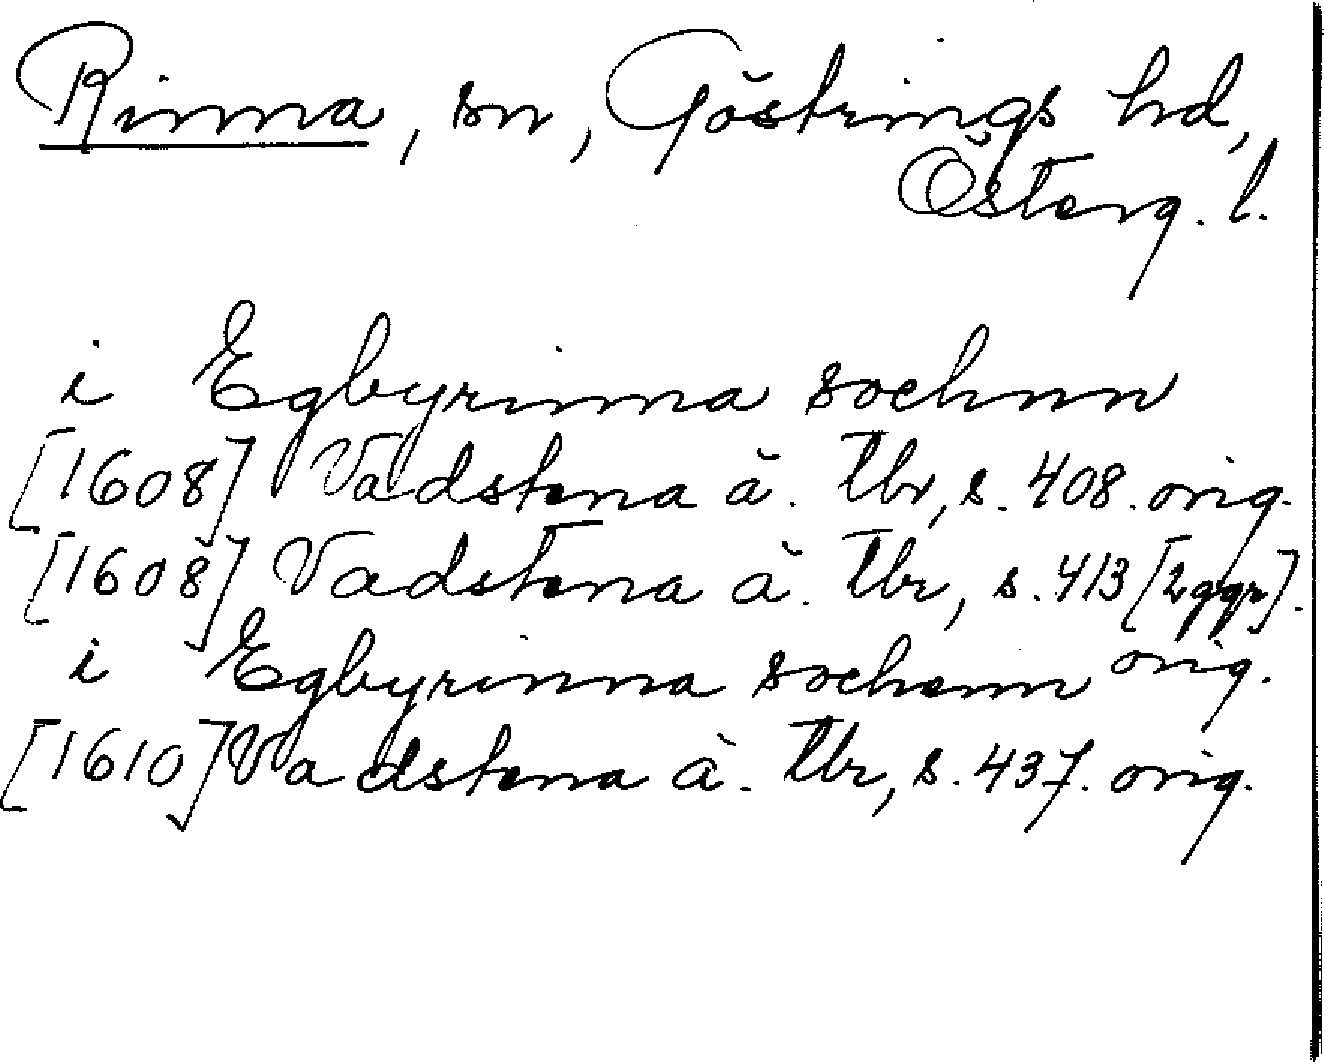 Rinna, sn, Göstrings hd,
Österg. l.
i Egbyrinna sochnn
[1608] Vadstena ä. tbr, s. 408. orig.
[1608] Vadstena ä. tbr, s. 413 [2 ggr].
i Egbyrinna sochenn orig.
[1610] Vadstena ä. tbr, s. 437. orig.